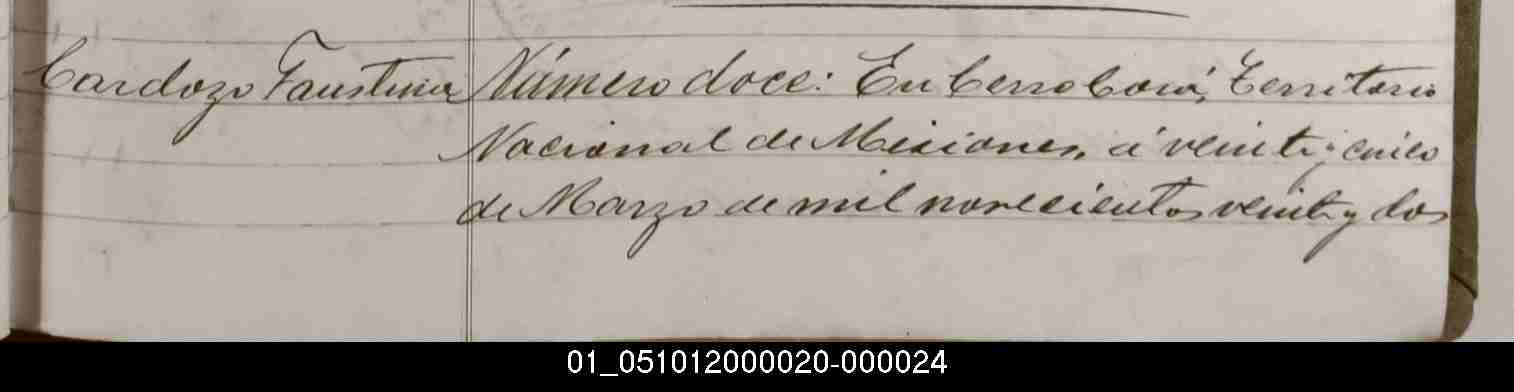 Cardozo Faustina
Número doce: En Cerro Corá, Territorio
Nacional de Misiones, á veinti y cinco
de Marzo de mil novecientos veinte y dos
01_051012000020-000024